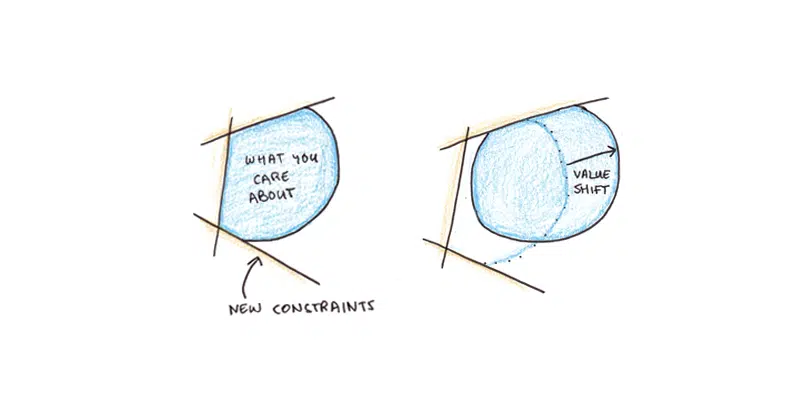 WHAT YOU
CARE
ABOUT
NEW CONSTRAINTS
VALUE
SHIFT